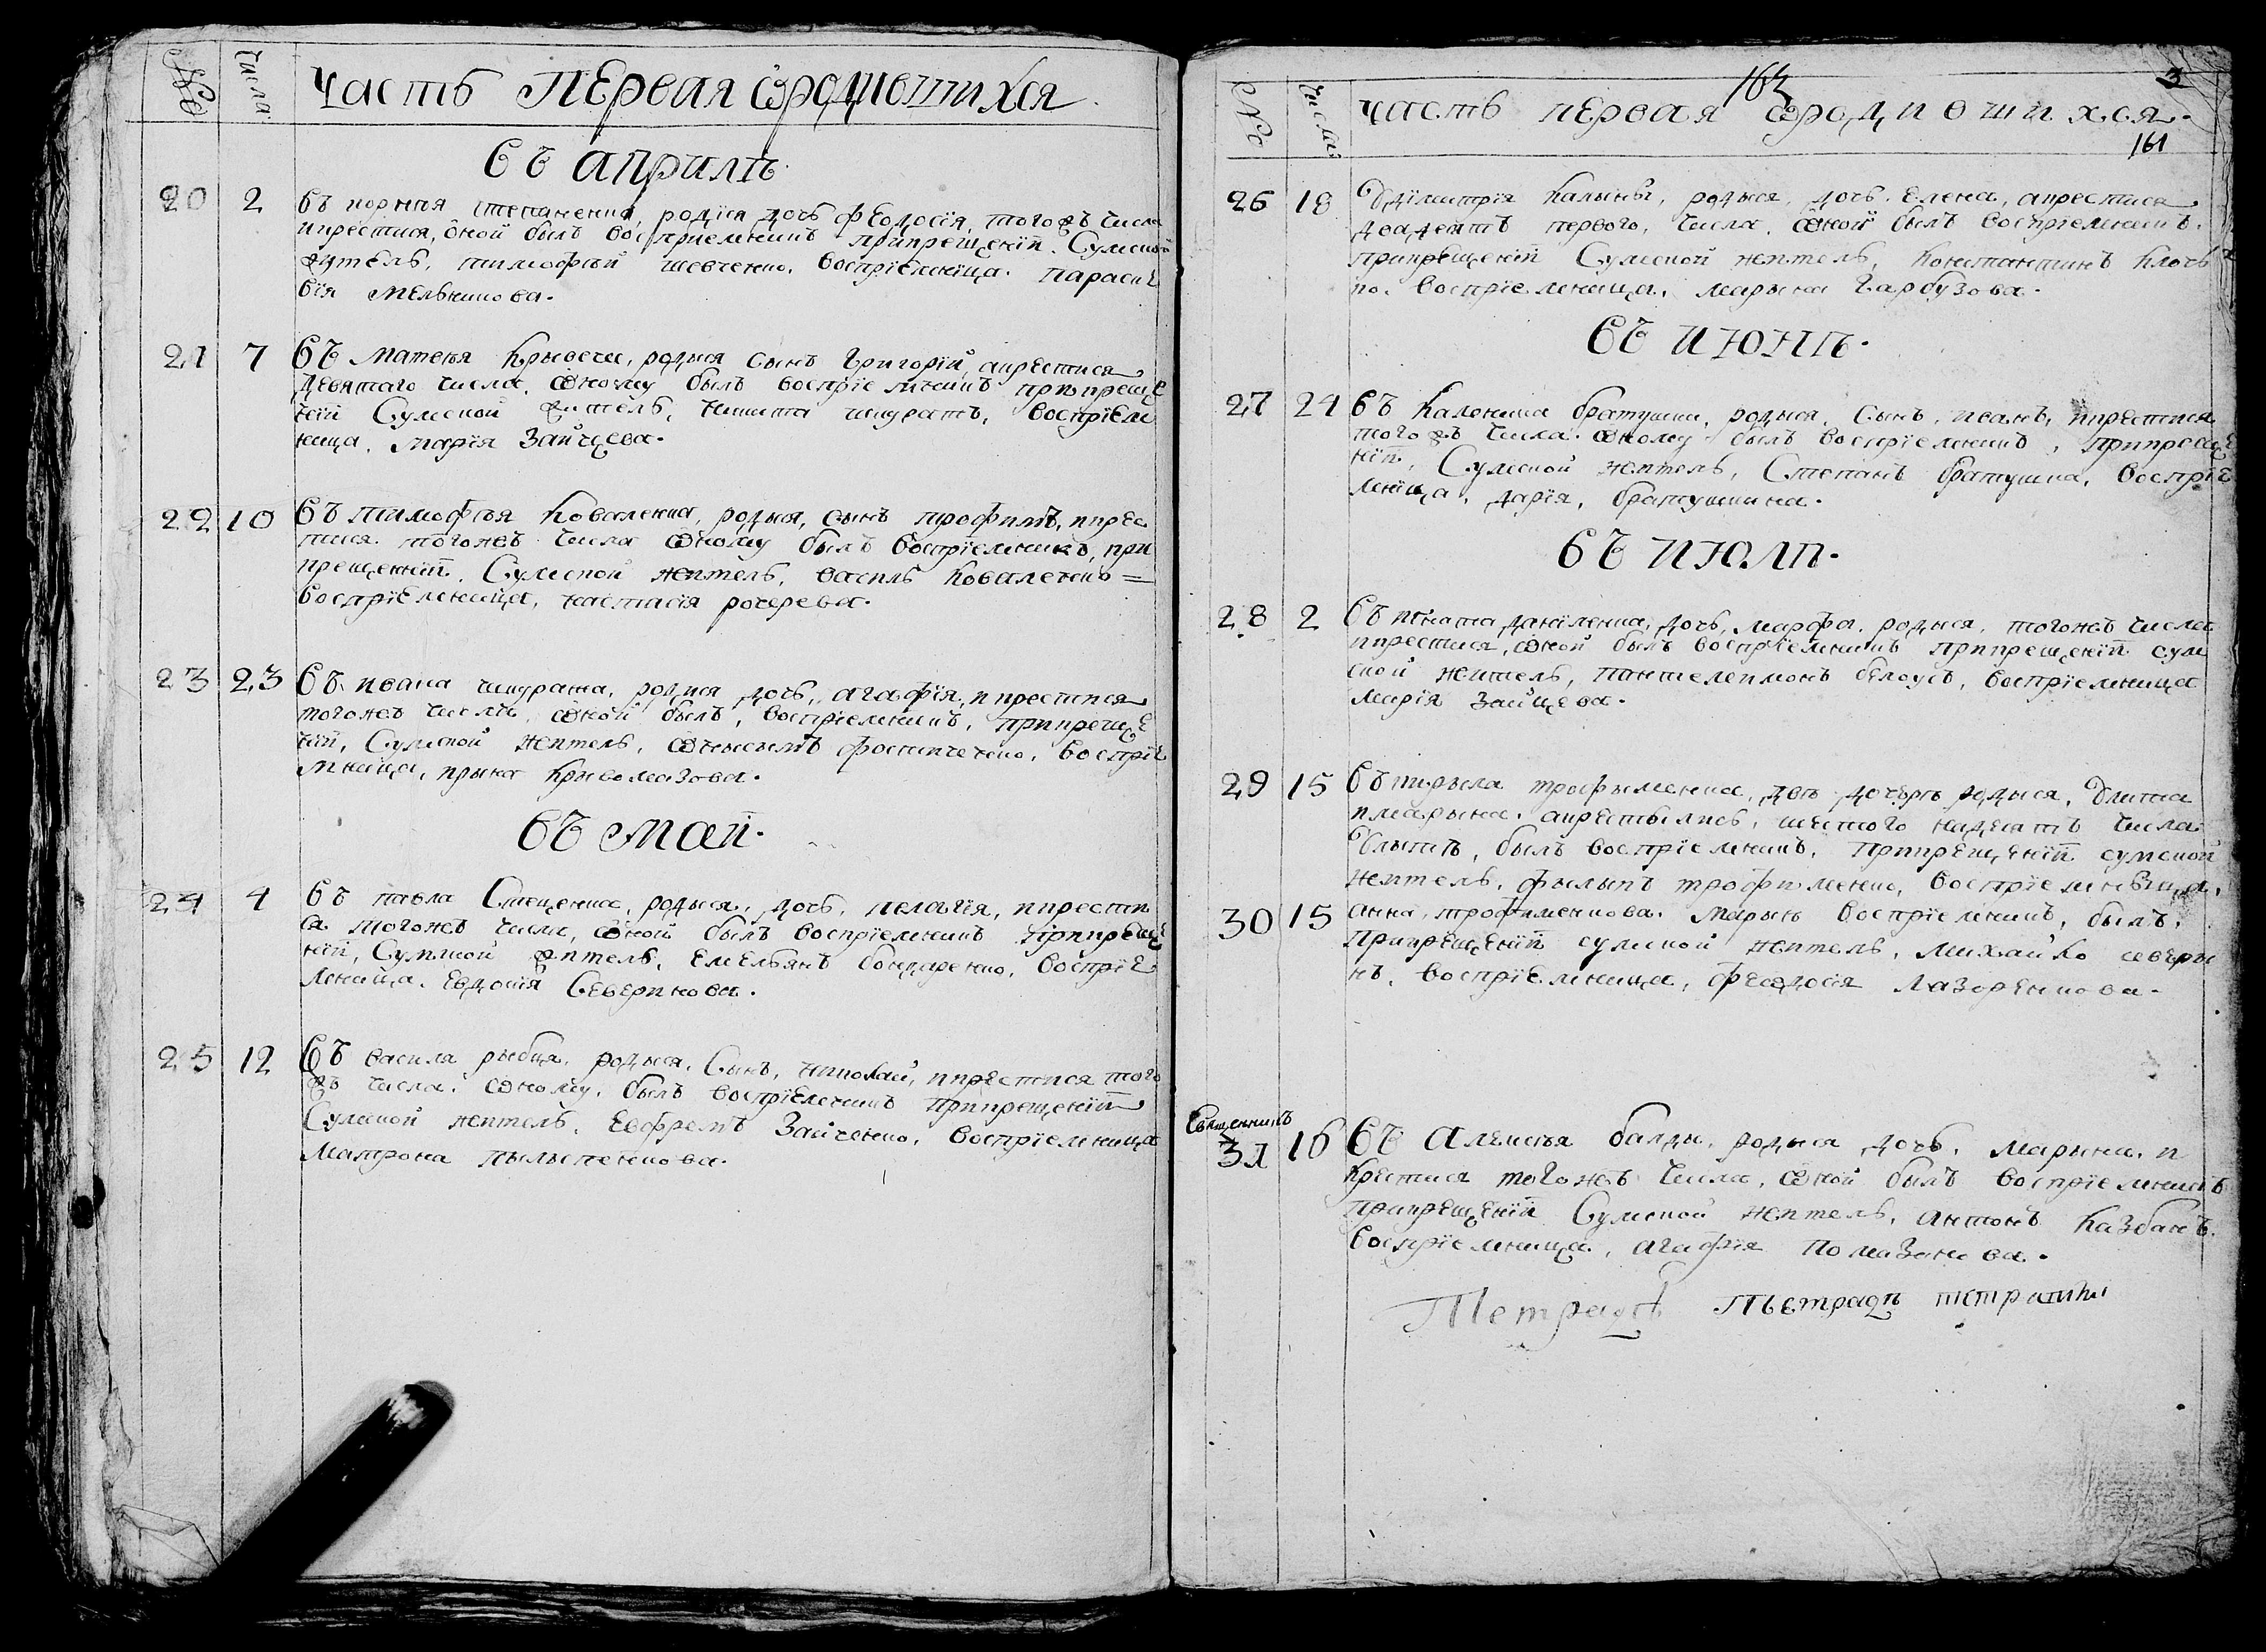 № числа часть первая ѡродившихся
Въ априлѣ
20 2 Въ корнѣя степаненка, родіся дочь феодосія, того жъ числа
икрестися, оной былъ воспріемникъ прикрещеніи Сумской
житель, тимофѣй шевченко, воспріемніца параске
вія мельникова.
21 7 Въ матвѣя Крывеги, родися сынъ Григорій, акрестися
девятаго числа, ѡному былъ воспріемникъ прикреще
ніи Сумской житель, никита шкуратъ, воспріем
ница, марія Зайцева.
22 10 Въ тимофѣя Коваленка, родыся, сынъ трофимъ, икрес
тися тогожъ числа ѡному былъ воспріемникъ, при
крещеніи, Сумской житель, василь Коваленко =
воспріемница, настасія
23 23 Въ ивана шкурата, родися дочь, агафія, икрестися
тогожъ числа, ѡной былъ, воспріемникъ, прикреще
ніи, Сумской житель, фостиченко, воспріе
мница, ирына Крывомазова.
Въ маіи
24 4 Въ павла Стеценка, родыся, дочь, пелагія, икрести
ся тогожъ числа, ѡной былъ воспріемникъ прикреще
ніи, Сумской житель, Емельянъ бондаренко, воспріе
мница, Евдокія Северинова.
25 12 Въ василя рыбця, родыся, Сынъ, николай, икрестися того
жъ числа, ѡному, былъ воспріемникъ прикрещеніи
Сумской житель, Евфремъ Зайченко, воспріемница
Матрона пылыпенкова.
163 3
№ числа часть первая ѡродившихся
161
26 18 Вдимитрія Калыны, родыся, дочь Елена, акрестися
двадеять первого, числа, ѡной былъ воспріемникъ,
прикрещеніи Сумской житель, Константинъ Клоч
ко, воспріемница, марына Гарбузова.
Въ июнѣ
27 24 Въ Каленика братушки, родыся, сынъ, иванъ, икрестися
тогожъ числа, ѡному былъ воспріемникъ, прикреще
ніи, Сумской житель, Степанъ братушка, воспріе
мніца, дарія, братушкина.
Въ июли
28 2 Въ игната даніленка, дочь, марфа, родыся, тогожъ числа
икрестися, ѡной былъ воспріемникъ прикрещеніи сум
ской житель, пантелеимонъ белоусъ, воспріемница
марія Зайцева.
29 15 Въ кирыла трофыменка, двѣ дочерѣ родыся, Улита
имарына, акрестылись, шестого надеать числа
Улытѣ, былъ воспріемникъ, прикрещеніи сумской
житель, фылыпъ трофименко, воспріемница,
30 15 анна, трофименкова. марынѣ воспріемникъ, былъ,
Прикрещеніи сумской житель, михайло северы
нъ, воспріемница, феодосія Лазоренкова.
Священникъ
31 16 Въ Алексѣя балды, родыся дочь, марына, и
крестися тогожъ числа, ѡной былъ воспріемникъ
прикрещеніи Сумской житель, антонъ Казбанъ,
воспріемница, агафія Помазанова.
Тетрадъ Тьетрадъ